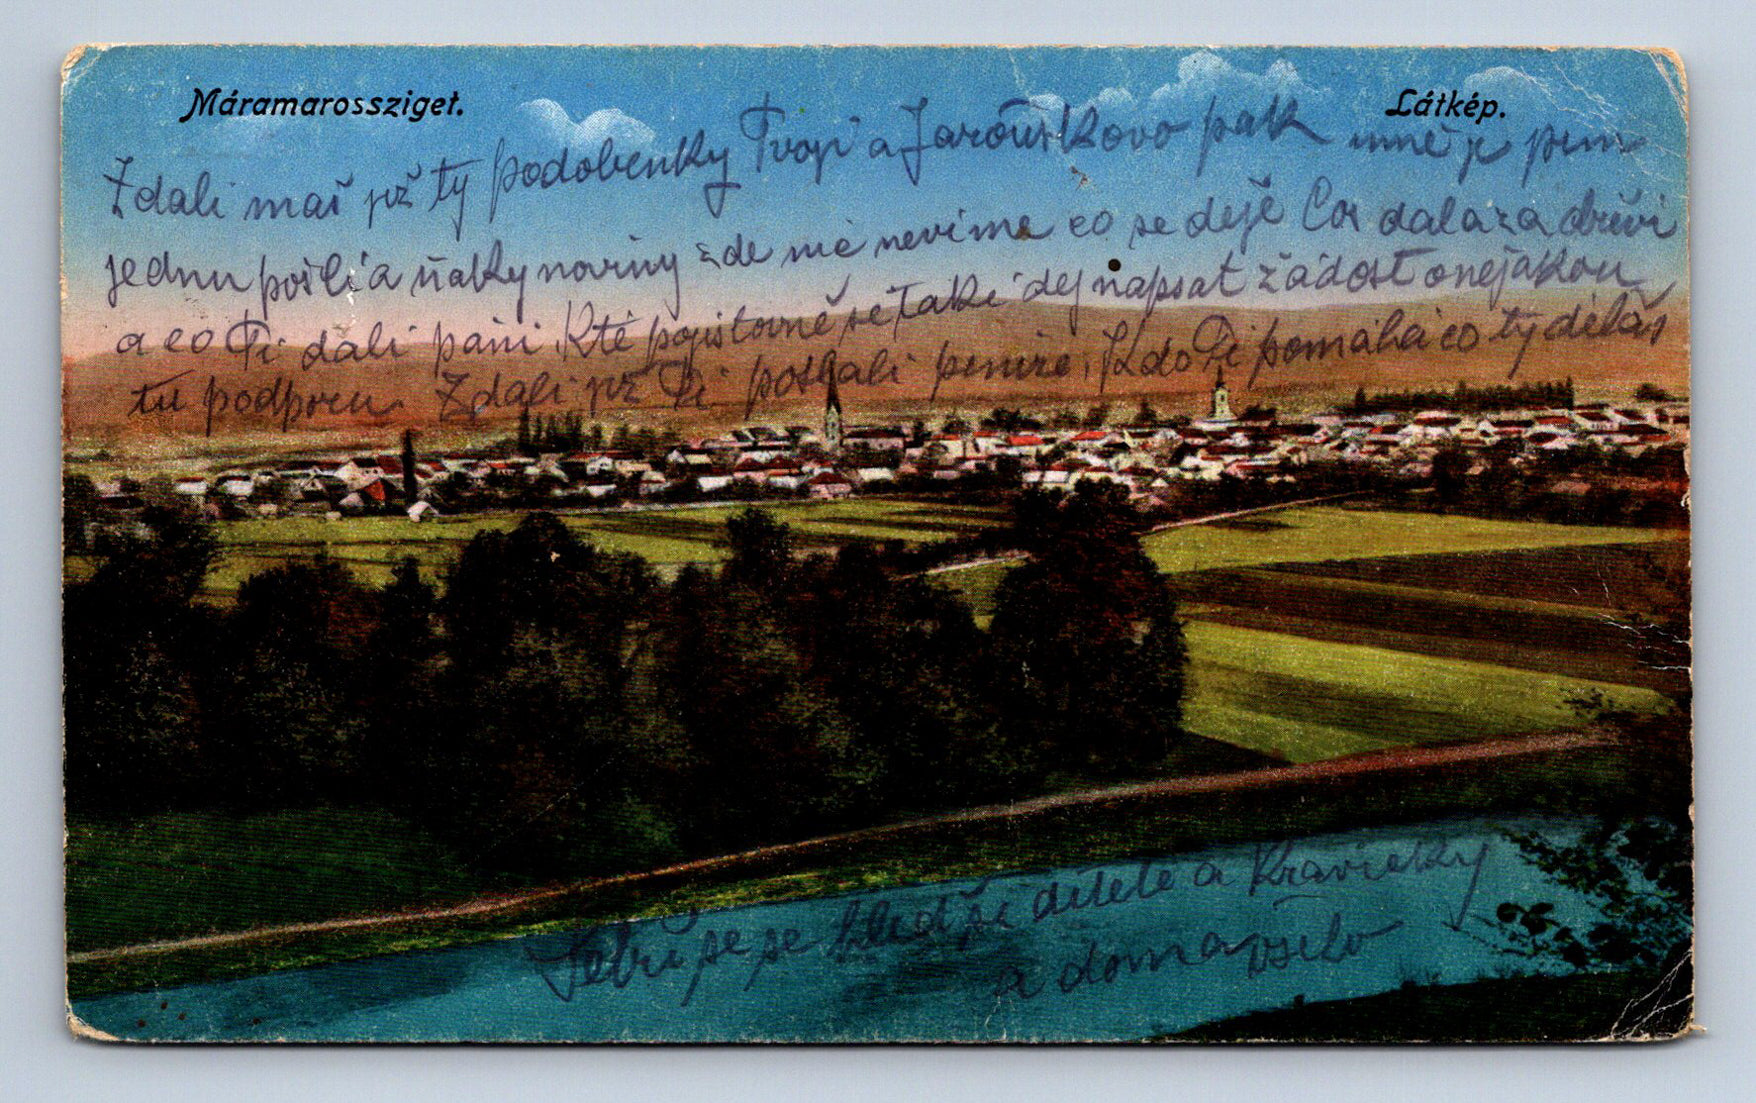 Máramarossziget.
Látkép.
Zdali maš již ty podobenky Tvoji a Jarouškovo pak mně je
jednu pošli a ňaky noviny zde nic nevime co se děje Cos dala za dřivi
a co Ti dali páni. Kté pojistovně se také dej napsat žádost o nejakou
tu podporu. Zdali již Ti poslali penize, Kdo Ti pomáhá co ty děláš
še se hleď si ditěte a Kravičky
a doma všeho